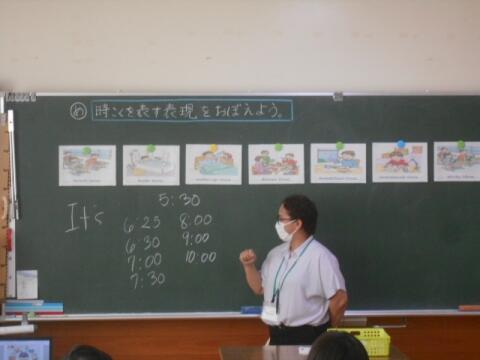 め 時こくを表す表現をおぼえよう。
It's
5:30
6:25 8:00
6:30 9:00
7:00 10:00
7:30